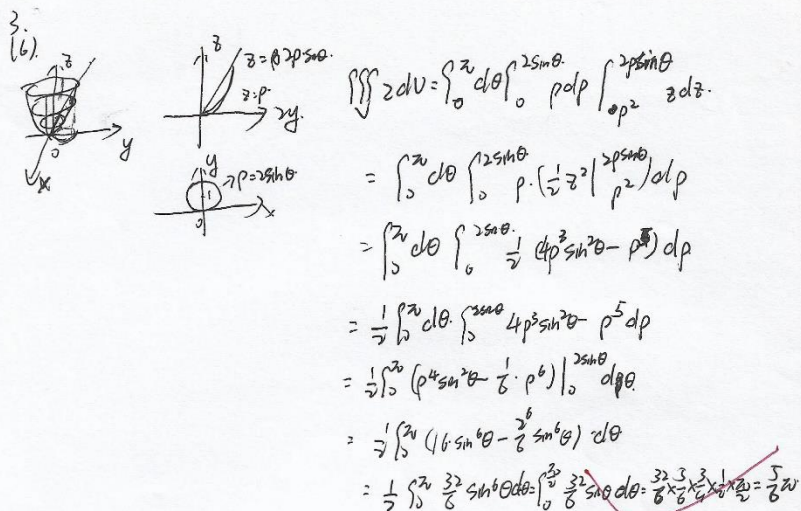 3.
(6).
z
y
x
0
z
z=β2ρ·sinθ.
z=ρ
2y.
y
ρ=2sinθ
1
0
x
∭zdv=∫₀^π dθ∫₀^{2sinθ} ρdρ ∫_{ρ²}^{2ρsinθ} zdz.
=∫₀^π dθ ∫₀^{2sinθ} ρ·(½z²|_{ρ²}^{2ρsinθ})dρ
=∫₀^π dθ ∫₀^{2sinθ} ½(4ρ³sin²θ-ρ⁵)dρ
=½∫₀^π dθ·∫₀^{2sinθ} 4ρ³sin²θ-ρ⁵dρ
=½∫₀^π (ρ⁴sin²θ-1/6·ρ⁶)|₀^{2sinθ} dθ.
=½∫₀^π (16·sin⁶θ-2⁶/6 sin⁶θ)·dθ
=½∫₀^π 32/6 sin⁶θdθ=∫₀^{π/2} 32/6 sinθdθ=32/6×5/6×3/4×1/2×π/2=5/6π